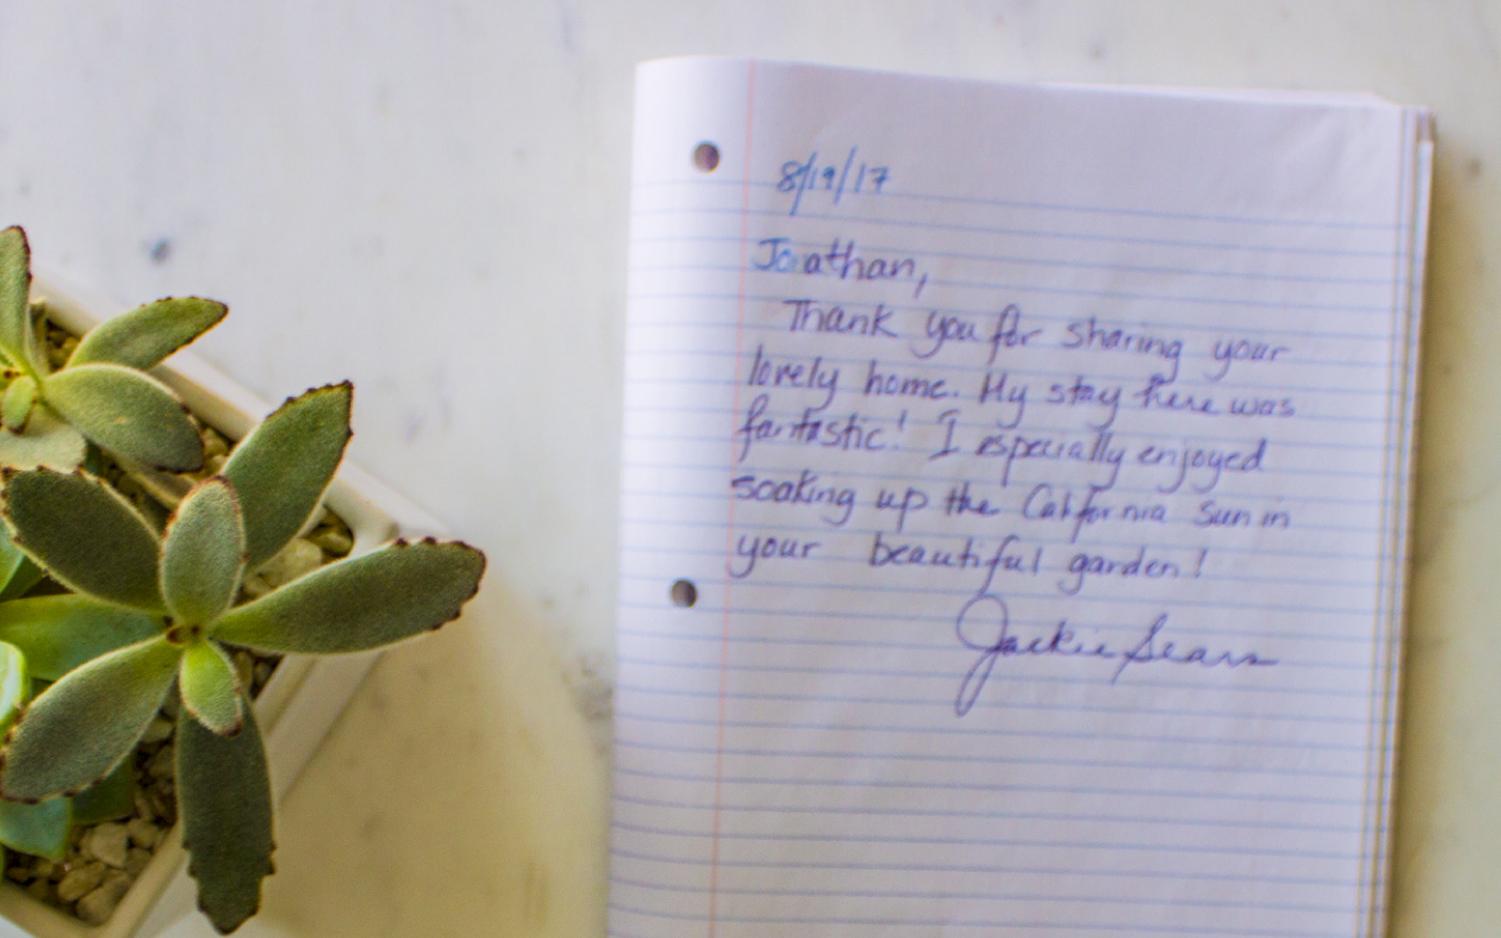 8/19/17
Joathan,
Thank you for sharing your
lovely home. My stay here was
fantastic! I especially enjoyed
soaking up the California sun in
your beautiful garden!
Jackie Sears